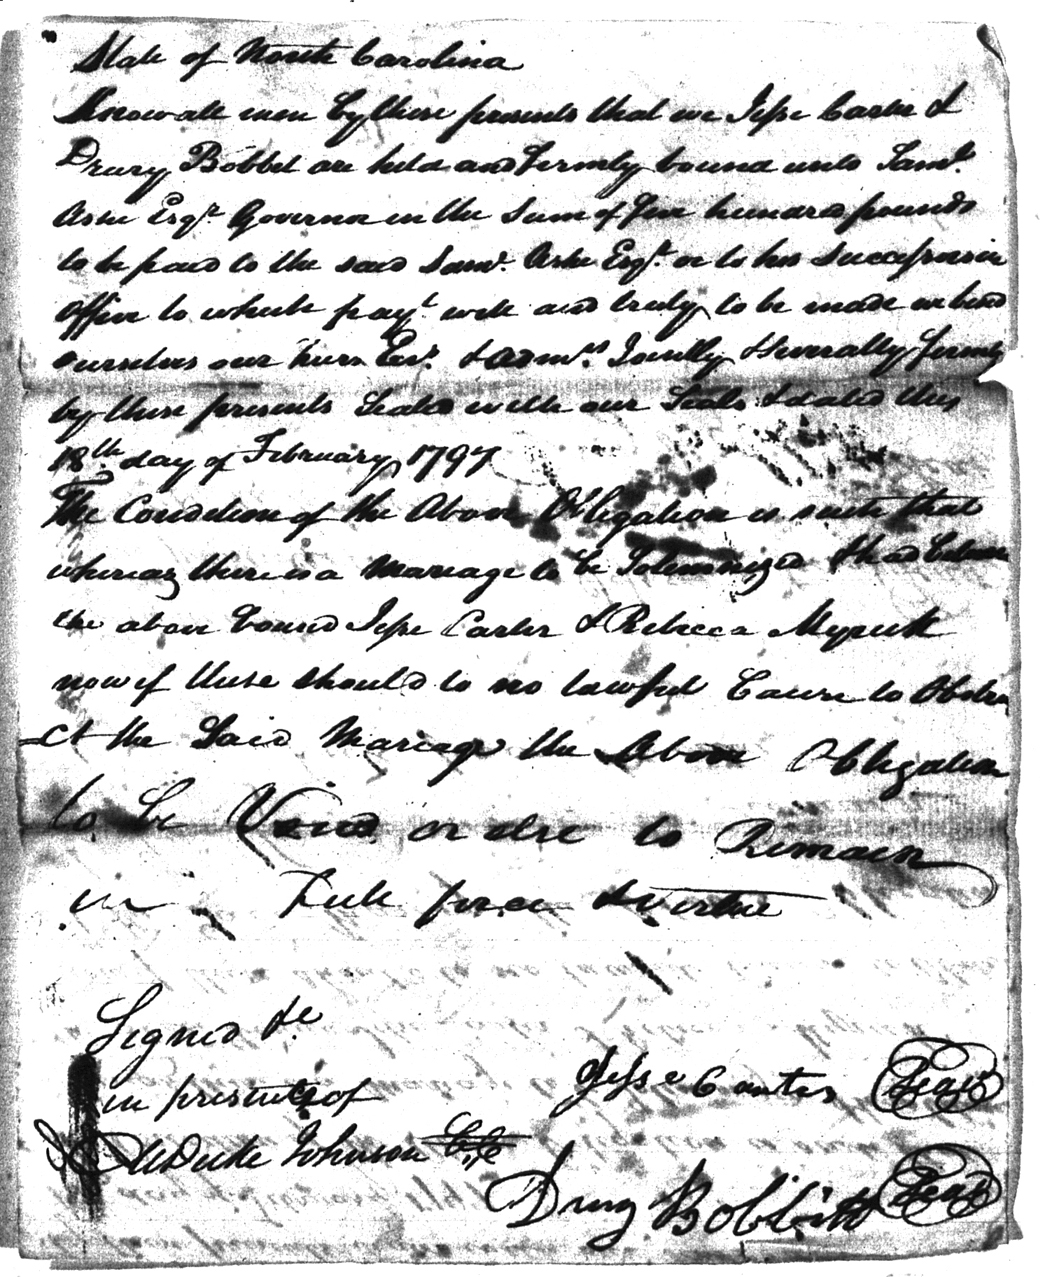 State of North Carolina
Know all men by these presents that we Jesse Carter &
Drury Bobbet are held and firmly bound unto Saml.
Ashe Esqr. Governor in the Sum of five hundred pounds
to be paid to the said Saml. Ashe Esqr. or to his successors in
office to which payt. well and truly to be made we bind
ourselves our heirs Exrs. & admrs. Jointly & severally firmly
by these presents Sealed with our Seals & dated this
18th day of February 1797
The Condition of the Above Obligation is such that
whereas there is a Marriage to be Solemnized & had Between
the above bound Jesse Carter & Rebecca Myrick
now if there should to no lawful Cause to Obstru
-ct the Said Marriage the Above Obligation
to be Void or else to Remain
in Full force & virtue
Signed &c
in presents of
Duke Johnson
Jesse Carter Seal
Drury Bobbitt Seal